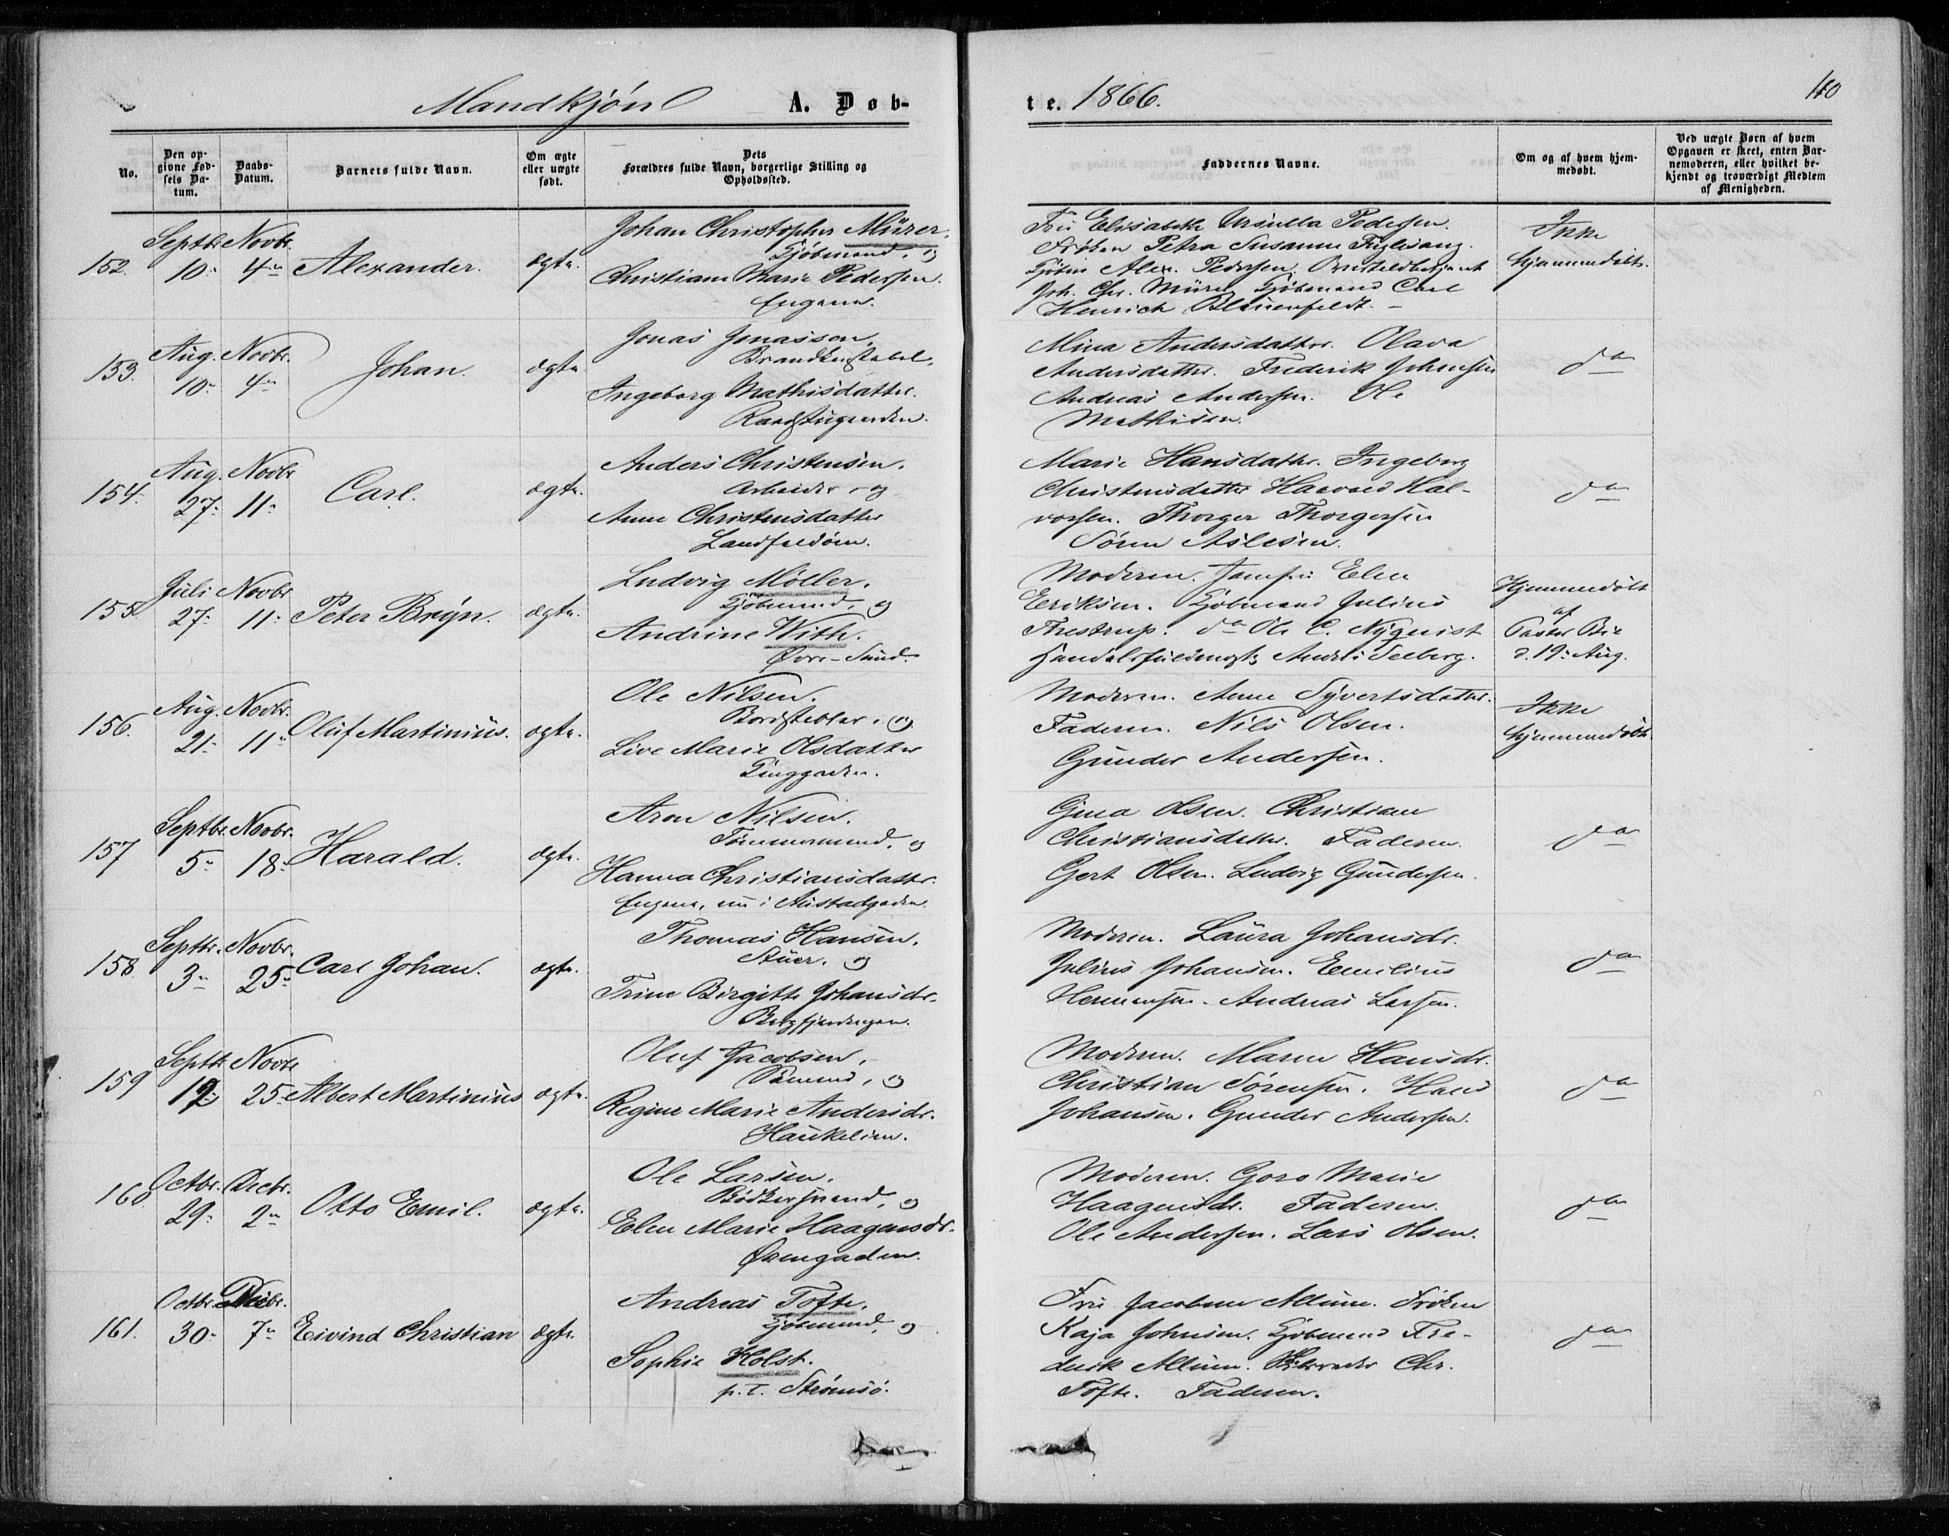 Mandkjøn A. Døb-
te. 1866.
110
No.
Den op-
givne Fød-
sels Da-
tum.
Daabs-
Datum.
Barnets fulde Navn.
Om ægte
eller uægte
født.
Dets
Forældres fulde Navn, borgerlige Stilling og
Opholdssted.
Faddernes Navne.
Om og af hvem hjem-
medøbt.
Ved uægte Børn af hvem
Opgaven er skeet, enten Bar-
nemoderen, eller hvilket be-
kjendt og troværdigt Medlem
af Menigheden.
152. Septbr. 10. Novbr. 4. Alexander. ægte.
Johan Christopher Mürer.
Kjøbmand, og
Christiane Marie Pedersen.
Engene.
Fru Elisabeth Ursulla Pedersen.
Frøken Petra Susanne Fuglesang.
Alex. Pedersen.
Joh. Chr. Mürer Kjøbmand Carl
Henrich Blauenfeldt.
Ikke
hjemmedøbt.
153. Aug. 10. Novbr. 4. Johan. ægte
Jonas Jonassen,
Brandkonstabel,
Ingeborg Mathisdatter.
Mina Andersdatter. Olava
Andersdatter. Frederik Johansen
Andreas Andersen. Ole
Mathisen.
do
154. Aug. 27. Novbr 11. Carl. ægte.
Anders Christensen.
Arbeider, og
Anne Christensdatter
Landfaldøen.
Marie Hansdatter. Ingeborg
Christensdatter Haavald Hal-
vorsen. Thorger Thorgersen
Søren Aslesen.
do
155. Juli 27. Novbr 11. Peter Brøyn. ægte.
Ludvig Møller.
Kjøbmand, og
Andrine With.
Øvre-Sund.
Moderen. Jomfru Elen
Eriksen. Kjøbmand Julius
Thestrup. do Ole C. Nyquist
Handelsfuldmægt. Seeberg.
Hjemmedøbt
af
Pastor Bie
d. 19. Aug.
156. Aug. 21. Novbr. 11. Oluf Martinius. ægte.
Ole Nilsen.
Bordstabler, og
Live Marie Olsdatter
Moderen. Anne Syvertsdatter.
Faderen. Nils Olsen.
Gunder Andersen.
Ikke
hjemmedøbt.
157 Septbr. 5. Novbr. 18. Harald. ægte.
Aron Nilsen.
Tømmermand, og
Hanna Christiansdatter.
Engene, nu i
Gina Olsen. Christiane
Christiansdatter. Faderen.
Gert Olsen. Ludvig Gundersen.
do
158. Septbr. 3. Novbr. 25. Carl Johan. ægte.
Thomas Hansen.
Stuer. og
Trine Birgitte Johansdr.
Bragfjerdingen.
Moderen. Laura Johansdr.
Julius Johansen. Emilius
Hermansen. Andreas Larsen.
do
159 Septbr. 12 Novbr 25. Albert Martinius ægte.
Oluf Jacobsen,
Sømand, og
Regine Marie Andersdr.
Haukelien.
Moderen. Maren Hansdr.
Christian Sørensen. Hans
Johansen. Gunder Andersen.
do
160 Octbr. 29. Decbr. 2. Otto Emil. ægte.
Ole Larsen.
Bødkersvend, og
Elen Marie Haagensdr.
Øvengaden.
Moderen. Goro Marie
Haagensdr. Faderen.
Ole Andersen. Lars Olsen.
do
161. Octbr. 30. Decbr. 7. Eivind Christian ægte.
Andreas Tofte.
Kjøbmand, og
Sophie Holst.
p. t. Strømsø.
Fru Jacobine Altum. Frøken
Kaja Johnsen. Kjøbmand Fre-
derik Altum. Chr.
Tofte. Faderen.
do